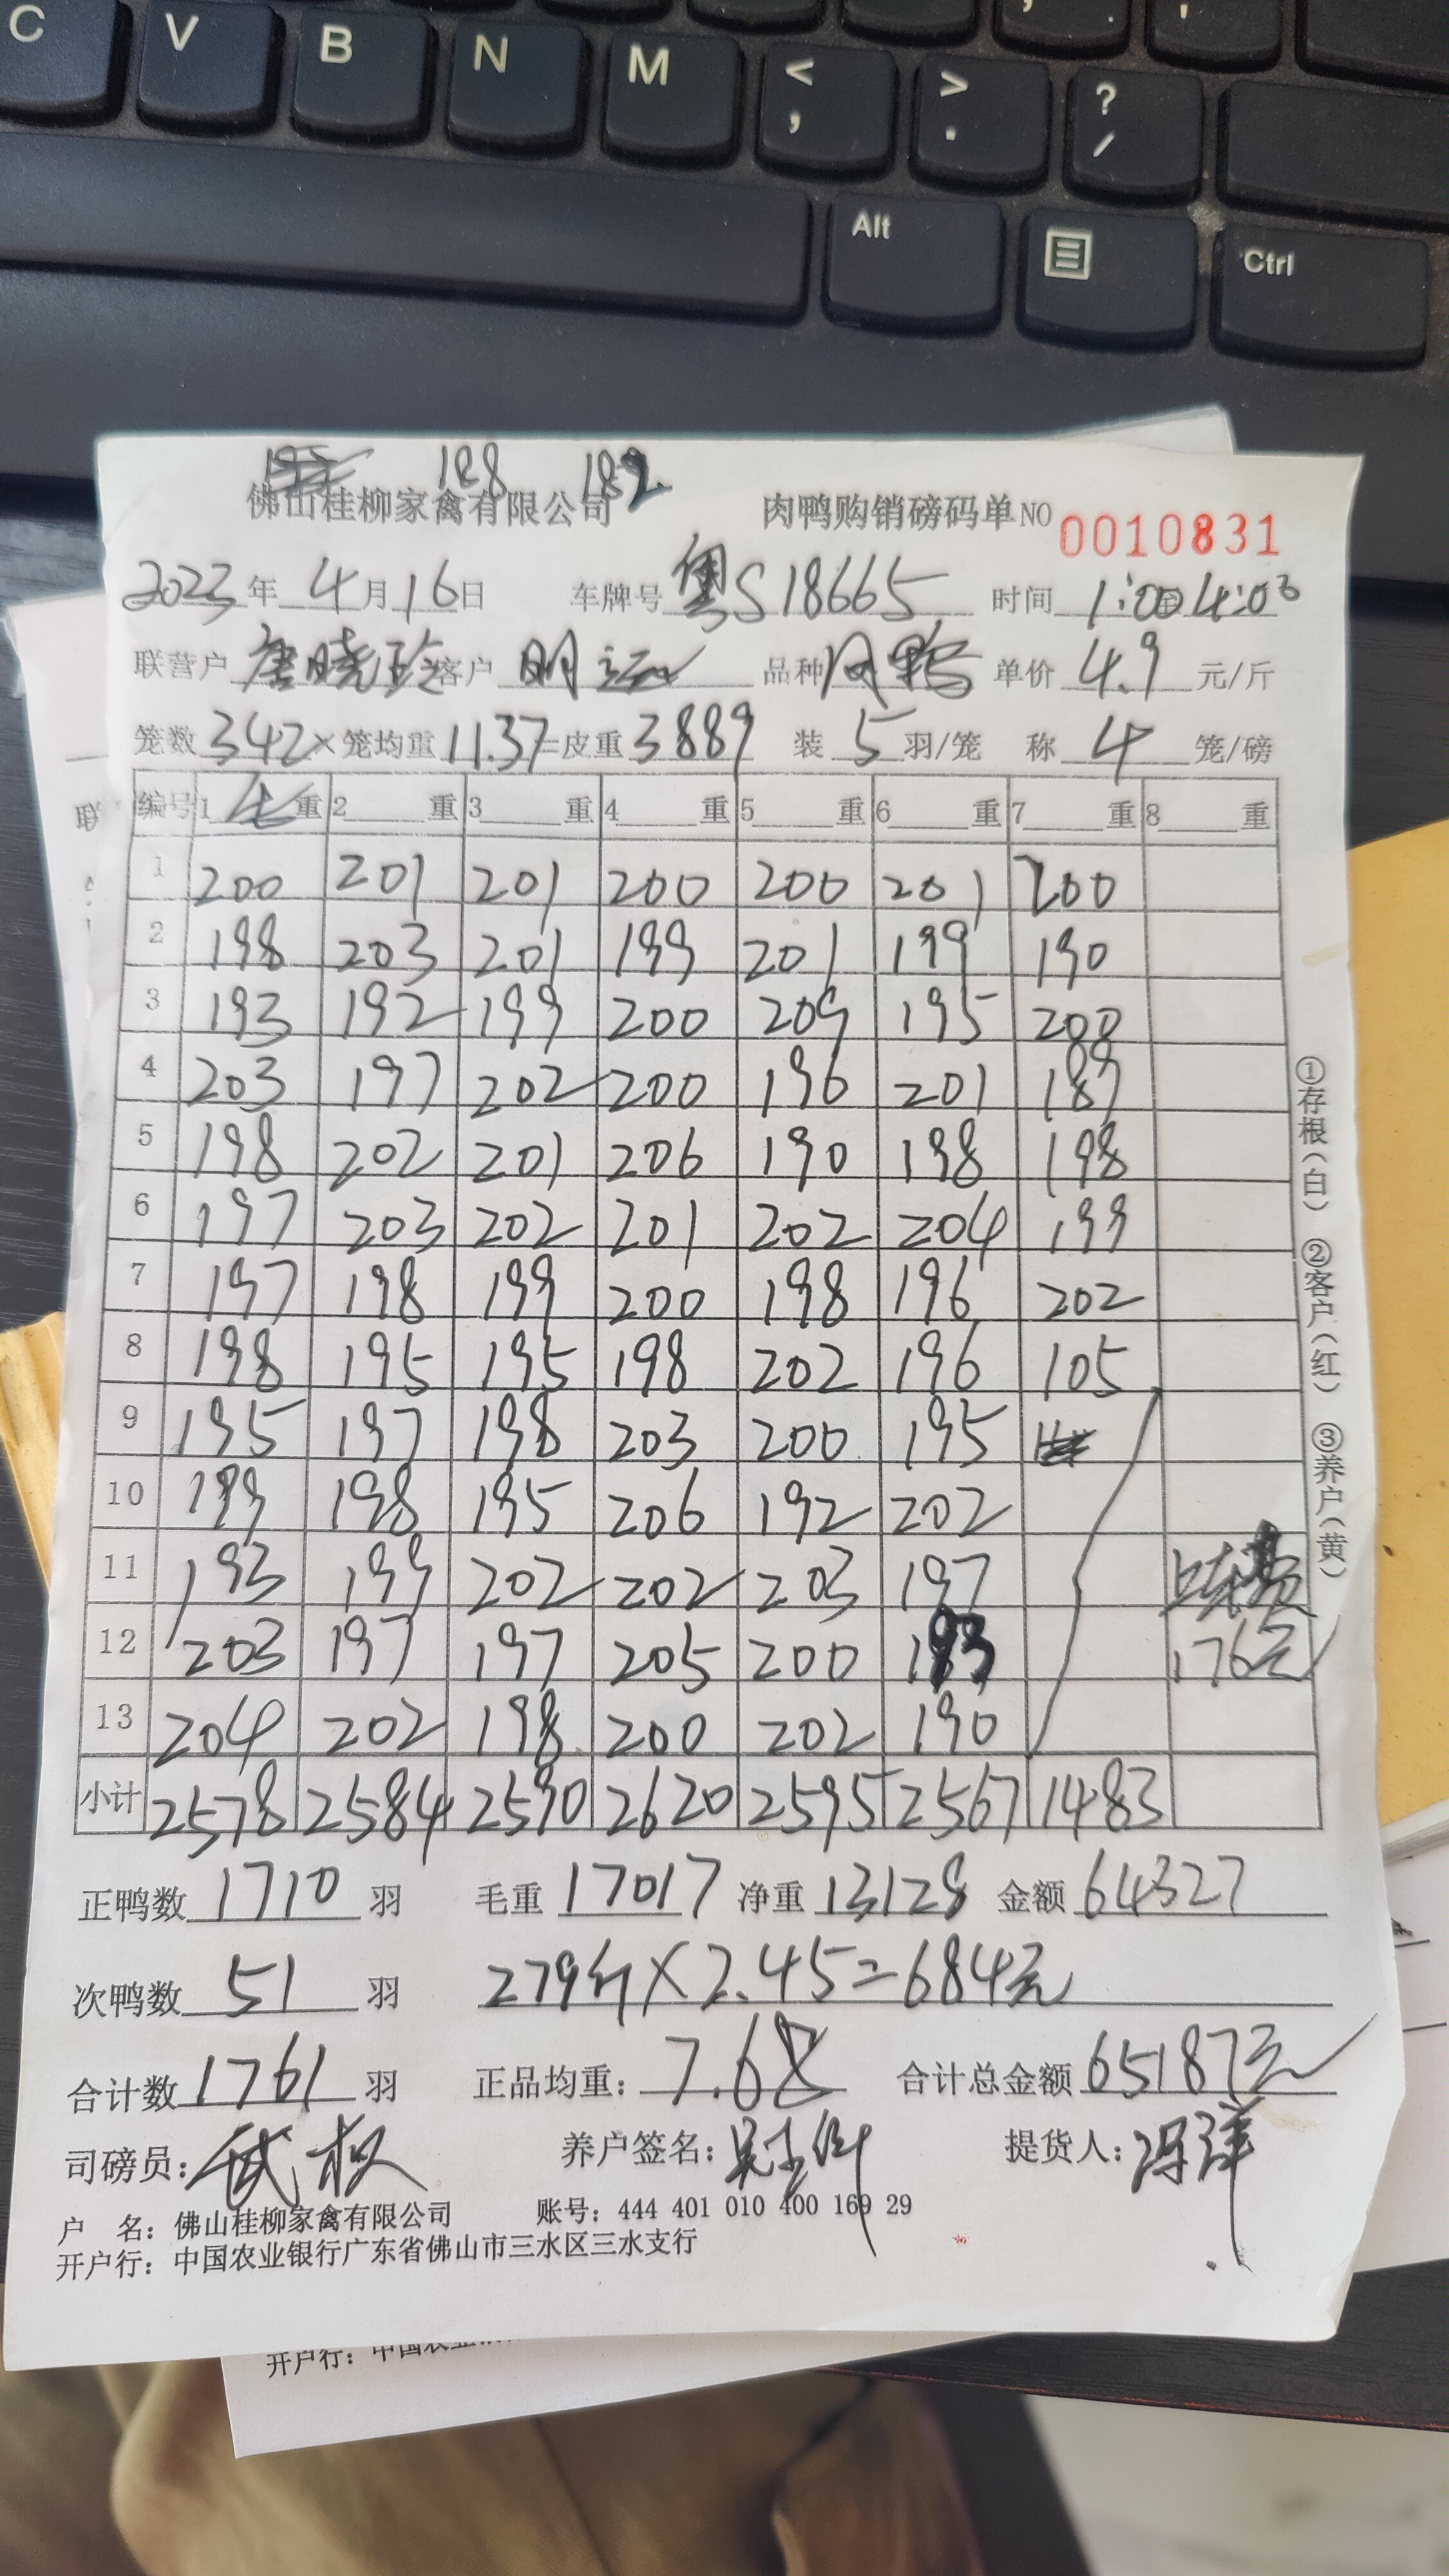 C V B N M < , > . ? /
Alt Ctrl
188 182
佛山桂柳家禽有限公司 肉鸭购销磅码单NO 0010831
2023年 4月16日 车牌号 粤S18665 时间 1:00至4:00
联营户 唐晓玲 客户 明运 品种 单价 4.9 元/斤
笼数 342×笼均重 11.37=皮重 3889 装 5 羽/笼 称 4 笼/磅
编号 1 毛 重 2 重 3 重 4 重 5 重 6 重 7 重 8 重
1 200 201 201 200 200 201 200
2 198 203 201 199 201 199 190
3 193 192 199 200 209 195 200
4 203 197 202 200 196 201 189
5 198 202 201 206 190 198 198
6 197 203 202 201 202 204 199
7 197 198 199 200 198 196 202
8 198 195 195 198 202 196 105
9 195 197 198 203 200 195
10 199 198 195 206 192 202
11 193 199 202 202 203 197
12 203 197 197 205 200 193
13 204 202 198 200 202 190
上车费
176元
小计 2578 2584 2590 2620 2595 2567 1483
①存根(白) ②客户(红) ③养户(黄)
正鸭数 1710 羽 毛重 17017 净重 13128 金额 64327
次鸭数 51 羽 279斤×2.45=684元
合计数 1761 羽 正品均重: 7.68 合计总金额 65187元
司磅员: 养户签名: 提货人:
户 名: 佛山桂柳家禽有限公司 账号: 444 401 010 400 169 29
开户行: 中国农业银行广东省佛山市三水区三水支行